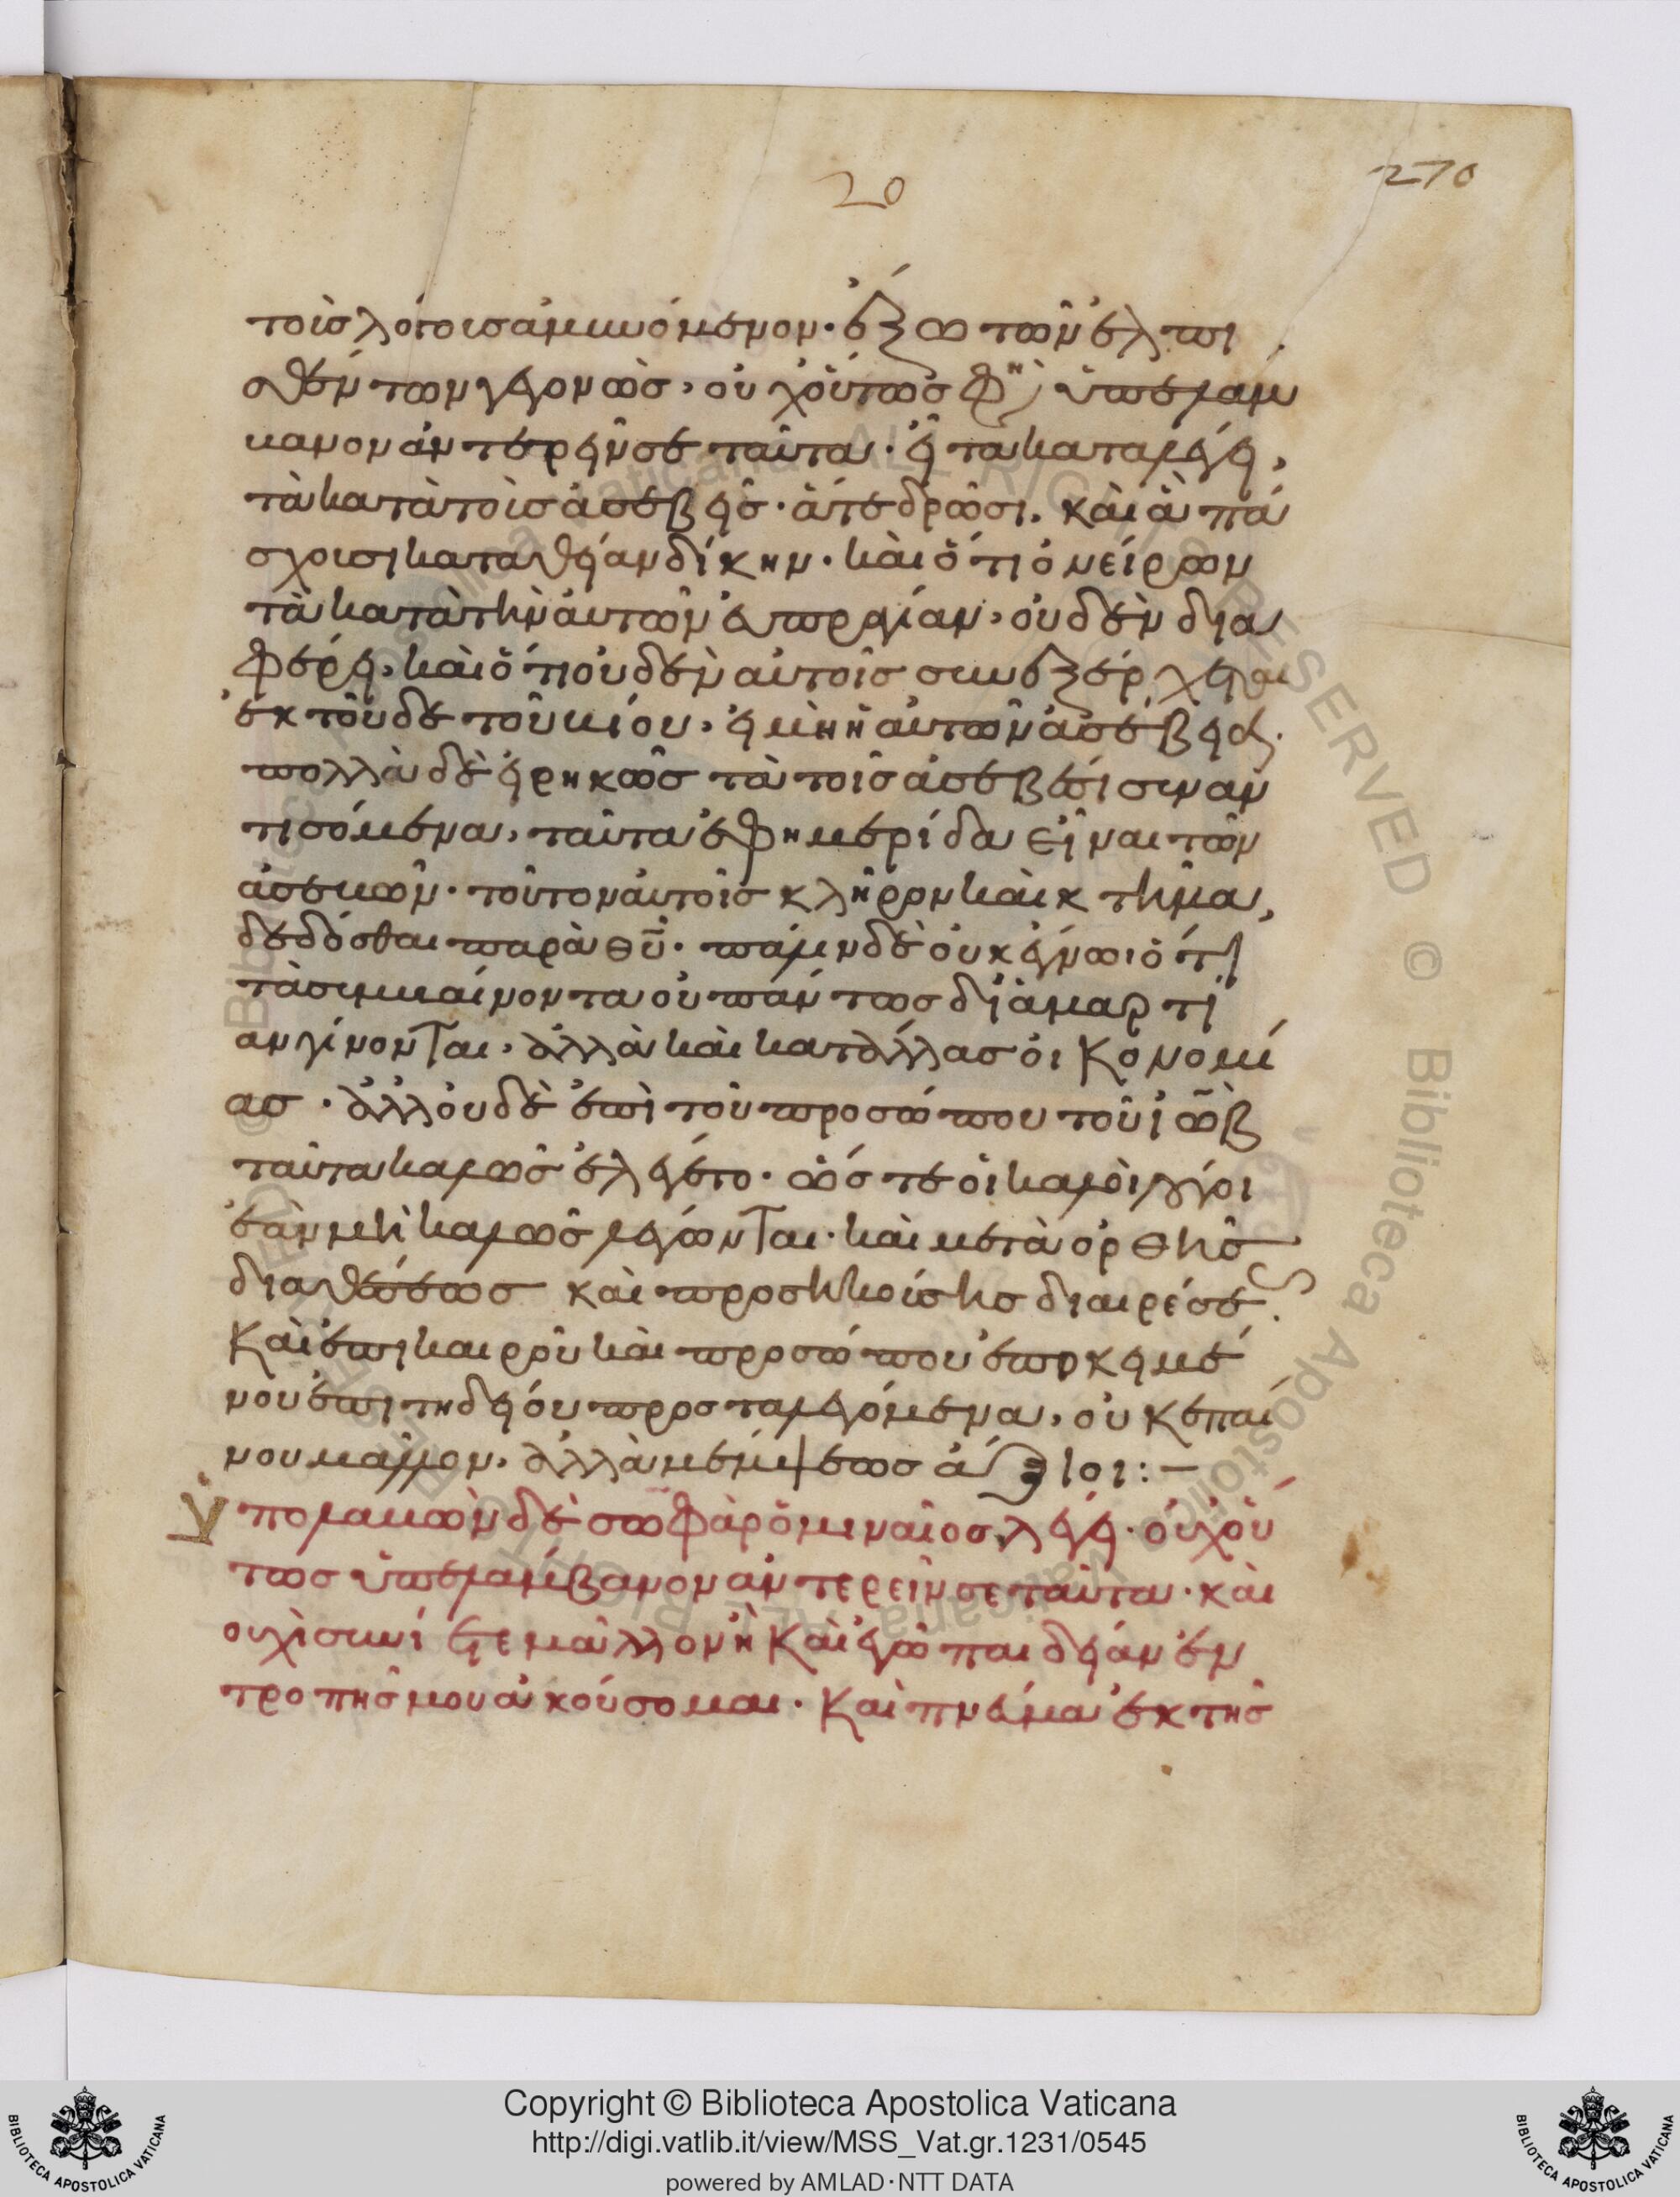 20
270
τοῖς λόγοις ἀμυνόμενον· ἔξω τῶν ἐλπι
σθέντων γεγονὼς, οὐχ οὕτως φη(σὶ) ὑπελάμ
βανον ἀντερεῖν σε ταῦτα· εἶτα καταλέγει,
τὰ κατὰ τοὺς ἀσεβεῖς· ἅ τε δρῶσι. καὶ ἃ πά
σχουσι κατὰ θείαν δίκην· καὶ ὅτι ὀνείρων
τὰ κατὰ τὴν αὐτῶν εὐπραγίαν, οὐδὲν δια
φέρει, καὶ ὅτι οὐδὲν αὐτοῖς συνεξέρχεται
ἐκ τοῦδε τοῦ βίου, εἰ μὴ ἡ αὐτῶν ἀσέβεια.
πολλὰ δὲ εἰρηκὼς τὰ τοῖς ἀσεβέσι συναν
τησόμενα, ταῦτα ἔφη μερίδα εἶναι τῶν
ἀσεβῶν· τοῦτον αὐτοῖς κλῆρον καὶ κτῆμα,
δεδόσθαι παρὰ θῡ· πάλιν δὲ οὐκ ᾔνω ὅτι
τὰ συμβαίνοντα οὐ πάντως δι' ἁμαρτί
αν γίνονται, ἀλλὰ καὶ κατ' ἄλλας οἰκονομί
ας· ἀλλ' οὐδὲ ἐπὶ τοῦ προσώπου τοῦ ἰὼβ
ταῦτα καλῶς ἐλέγετο· ὥστε οἱ καλοὶ λόγοι
ἐὰν μὴ καλῶς λέγωνται· καὶ μετὰ ὀρθῆς
διαθέσεως καὶ προσηκούσης διαιρέσε(ως).
Καὶ ἐπὶ καιροῦ καὶ προσώπου ἐποκειμέ
νου ἐπιτηδείου πρὸς τὰ λεγόμενα, οὐκ ἐπαί
νου μᾶλλον, ἀλλὰ μέμψεως ἄξιοι:–
Ὑπολαβὼν δὲ σωφὰρ ὁ μιναῖος λέγει· οὐχ οὕ
τως ὑπελάμβανον ἀντερεῖν σε ταῦτα· καὶ
οὐχὶ συνίετε μᾶλλον ἢ καὶ ἐγώ παιδείαν ἐν
τροπῆς μου ἀκούσομαι· Καὶ πνεῦμα ἐκ τῆς
Copyright © Biblioteca Apostolica Vaticana
http://digi.vatlib.it/view/MSS_Vat.gr.1231/0545
powered by AMLAD·NTT DATA
BIBLIOTECA APOSTOLICA VATICANA
BIBLIOTECA APOSTOLICA VATICANA